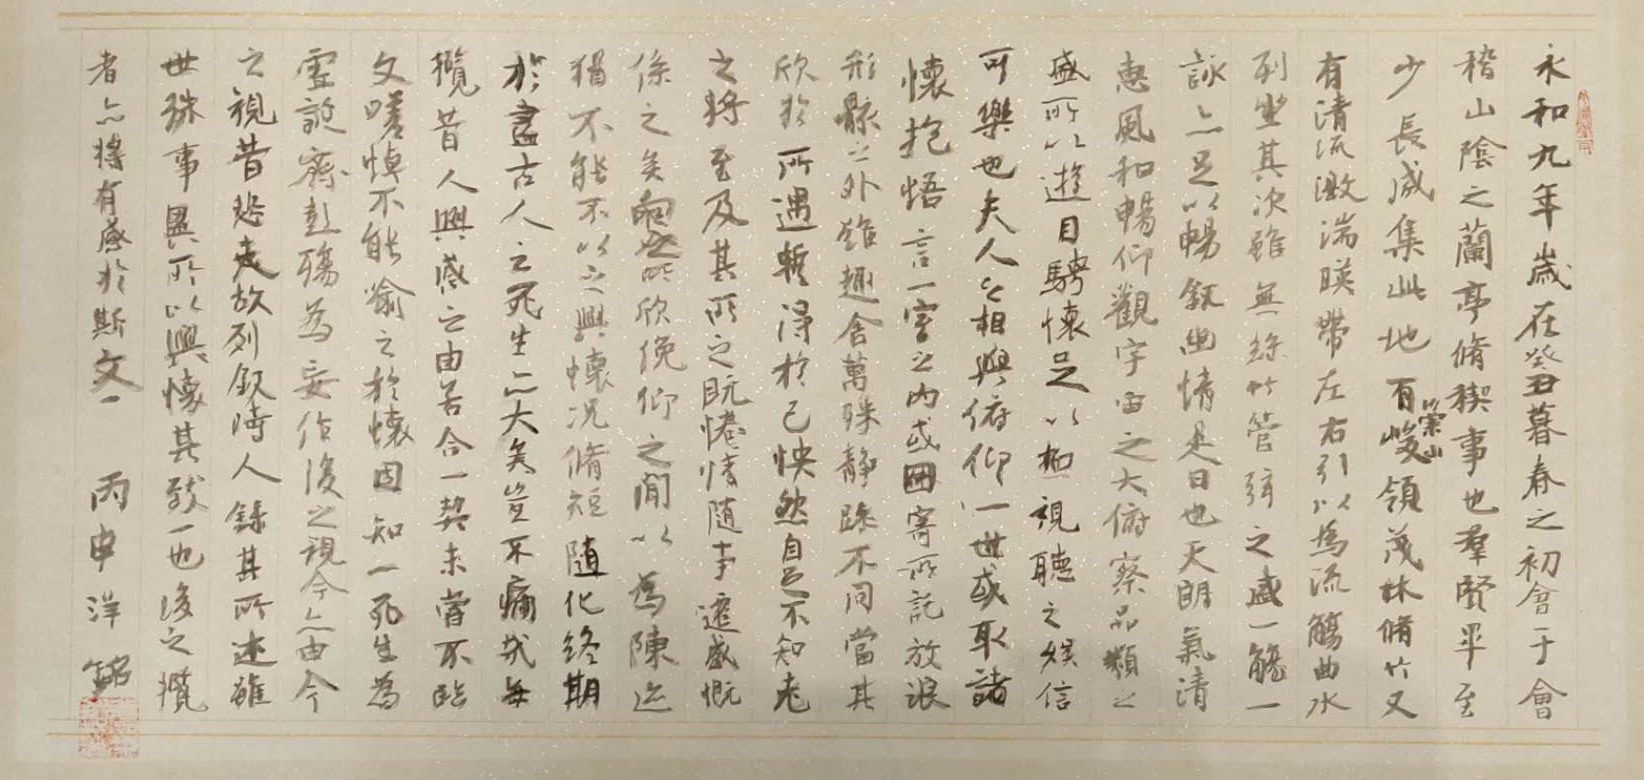 永和九年歲在癸丑暮春之初會于會
稽山陰之蘭亭脩禊事也羣賢畢至
少長咸集此地有崇山峻領茂林脩竹又
有清流激湍暎帶左右引以為流觴曲水
列坐其次雖無絲竹管弦之盛一觴一
詠亦足以暢敘幽情是日也天朗氣清
惠風和暢仰觀宇宙之大俯察品類之
盛所以遊目騁懷足以極視聽之娛信
可樂也夫人之相與俯仰一世或取諸
懷抱悟言一室之內或因寄所託放浪
形骸之外雖趣舍萬殊靜躁不同當其
欣於所遇暫得於己怏然自足不知老
之將至及其所之既惓情隨事遷感慨
係之矣向之所欣俛仰之閒以為陳迹
猶不能不以之興懷況脩短隨化終期
於盡古人云死生亦大矣豈不痛哉每
攬昔人興感之由若合一契未嘗不臨
文嗟悼不能喻之於懷固知一死生為
虛誕齊彭殤為妄作後之視今亦由今
之視昔悲夫故列敘時人錄其所述雖
世殊事異所以興懷其致一也後之攬
者亦將有感於斯文 丙申 洋銘